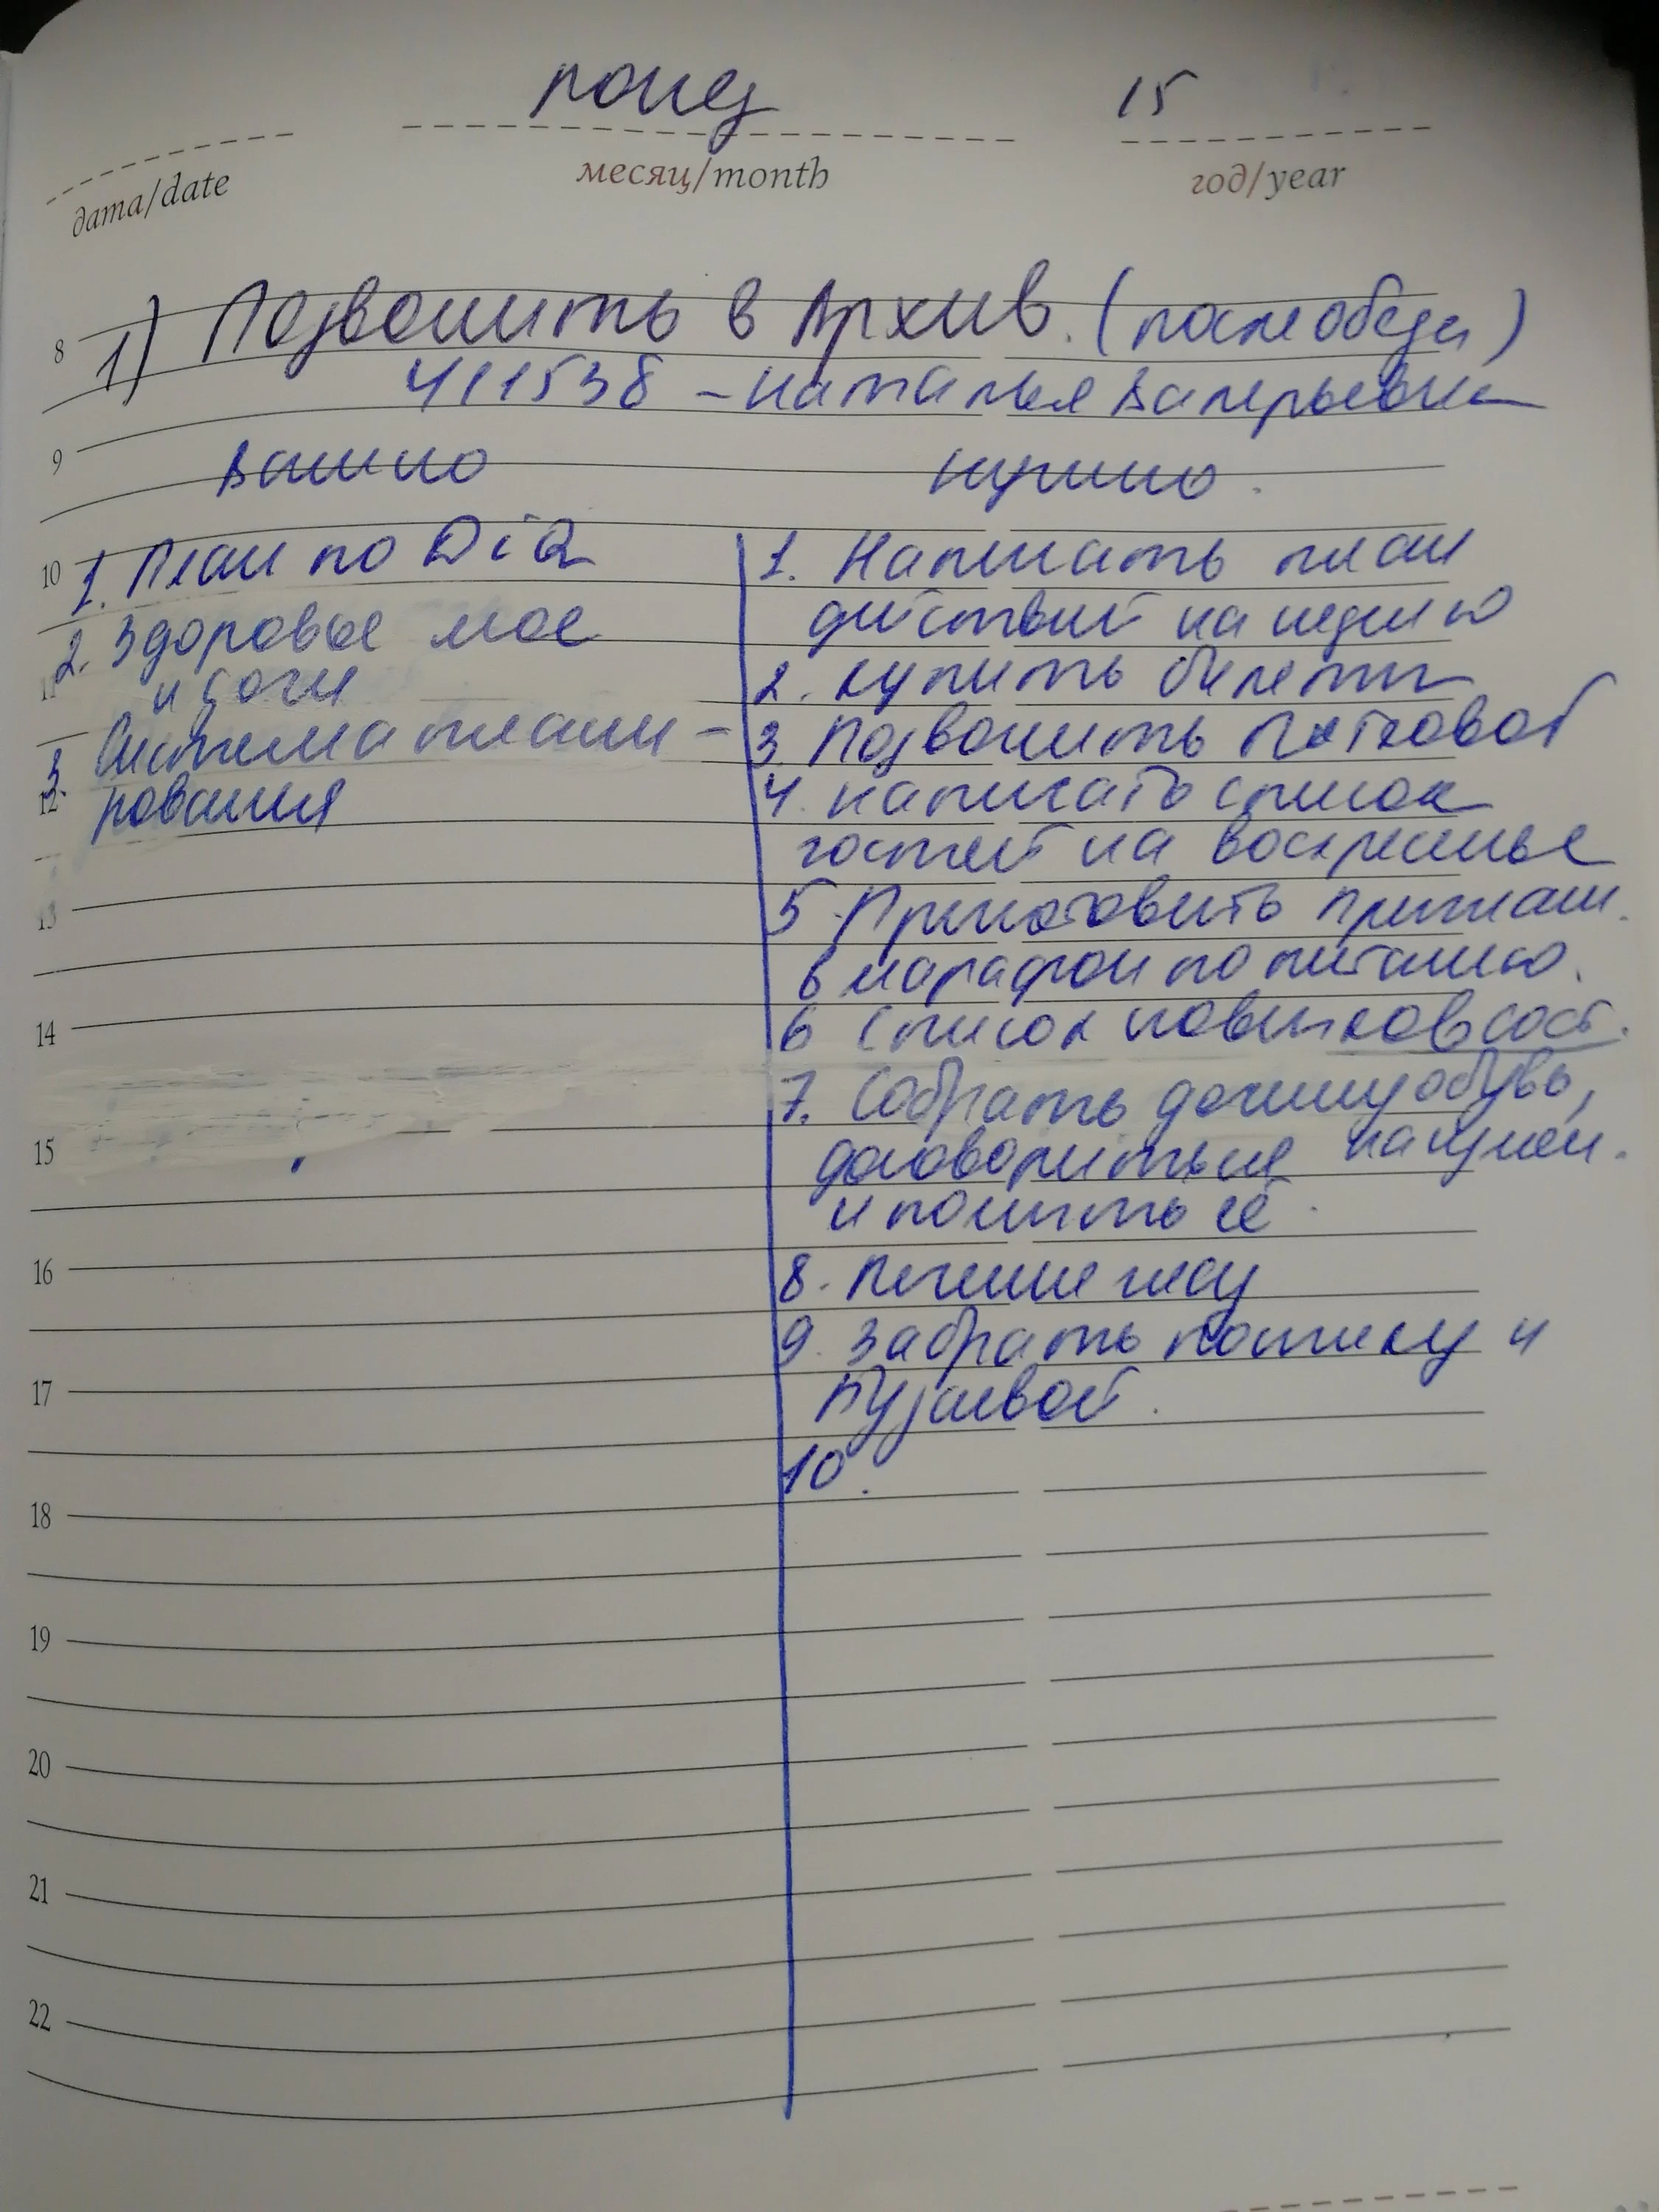 понед 15
дата/date месяц/month год/year
8 1) Позвонить в Архив. (после обеда)
411538 – Наталья Валерьевна
9 Важно Нужно.
10 1. План по DiQ
2. Здоровье мое
11 и дочи
3. Система плани –
12 рования
1. Написать план
действий на неделю
2. купить билеты
3. Позвонить
4. написать список
гостей на воскресенье
5. Приготовить приглаш.
в марафон по питанию.
6 Список новичков сост.
7. Собрать дочину обувь,
договориться
и помыть её.
8. Печенье
9. Забрать посылку у
10.
13
14
15
16
17
18
19
20
21
22